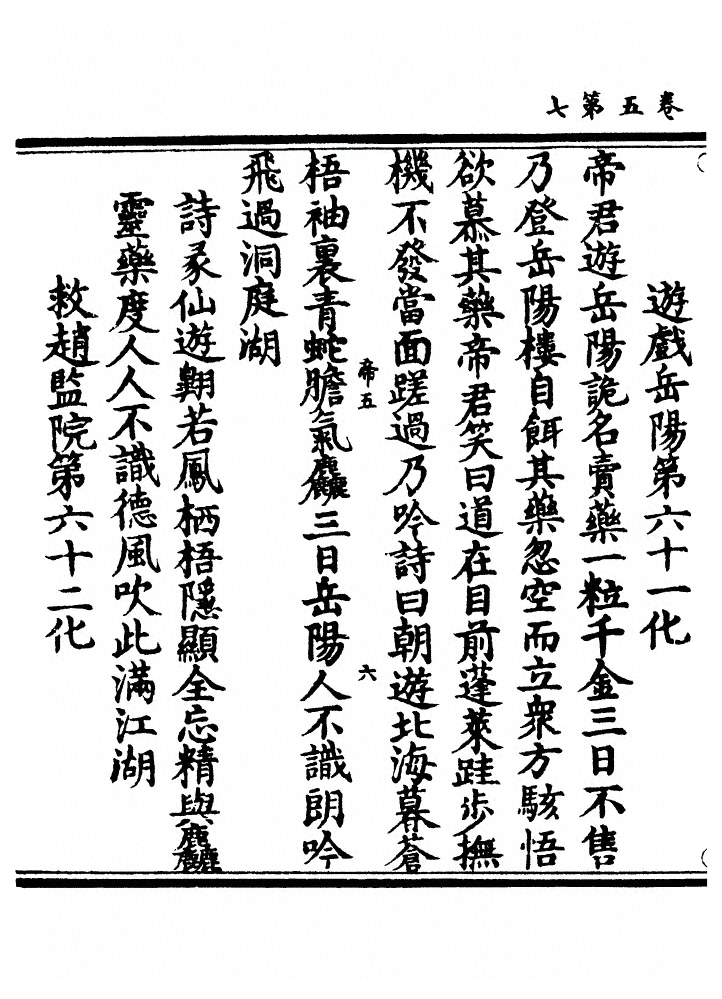 卷五第七
遊戲岳陽第六十一化
帝君遊岳陽詭名賣藥一粒千金三日不售
乃登岳陽樓自餌其藥忽空而立衆方駭悟
欲慕其藥帝君笑曰道在目前蓬萊跬步撫
機不發當面蹉過乃吟詩曰朝遊北海暮蒼
帝五
六
梧袖裏青蛇膽氣麤三日岳陽人不識朗吟
飛過洞庭湖
詩彖仙遊翺若鳳栖梧隱顯全忘精與麤
靈藥度人人不識德風吹此滿江湖
救趙監院第六十二化